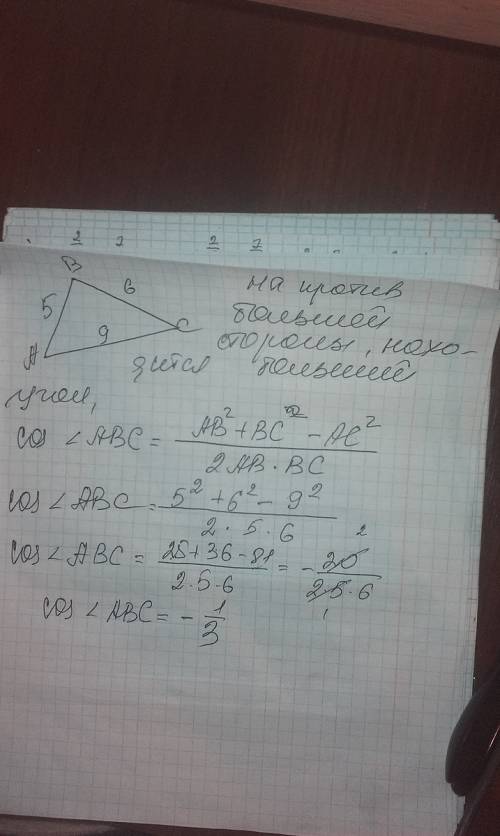 B
6
5
C
9
A
на против
большей
стороны, нахо-
дится больший
угол,
cos ∠ABC = (AB² + BC² - AC²) / (2AB · BC)
cos ∠ABC = (5² + 6² - 9²) / (2 · 5 · 6)
cos ∠ABC = (25 + 36 - 81) / (2 · 5 · 6) = - 20 / (2 · 5 · 6)
cos ∠ABC = - 1/3